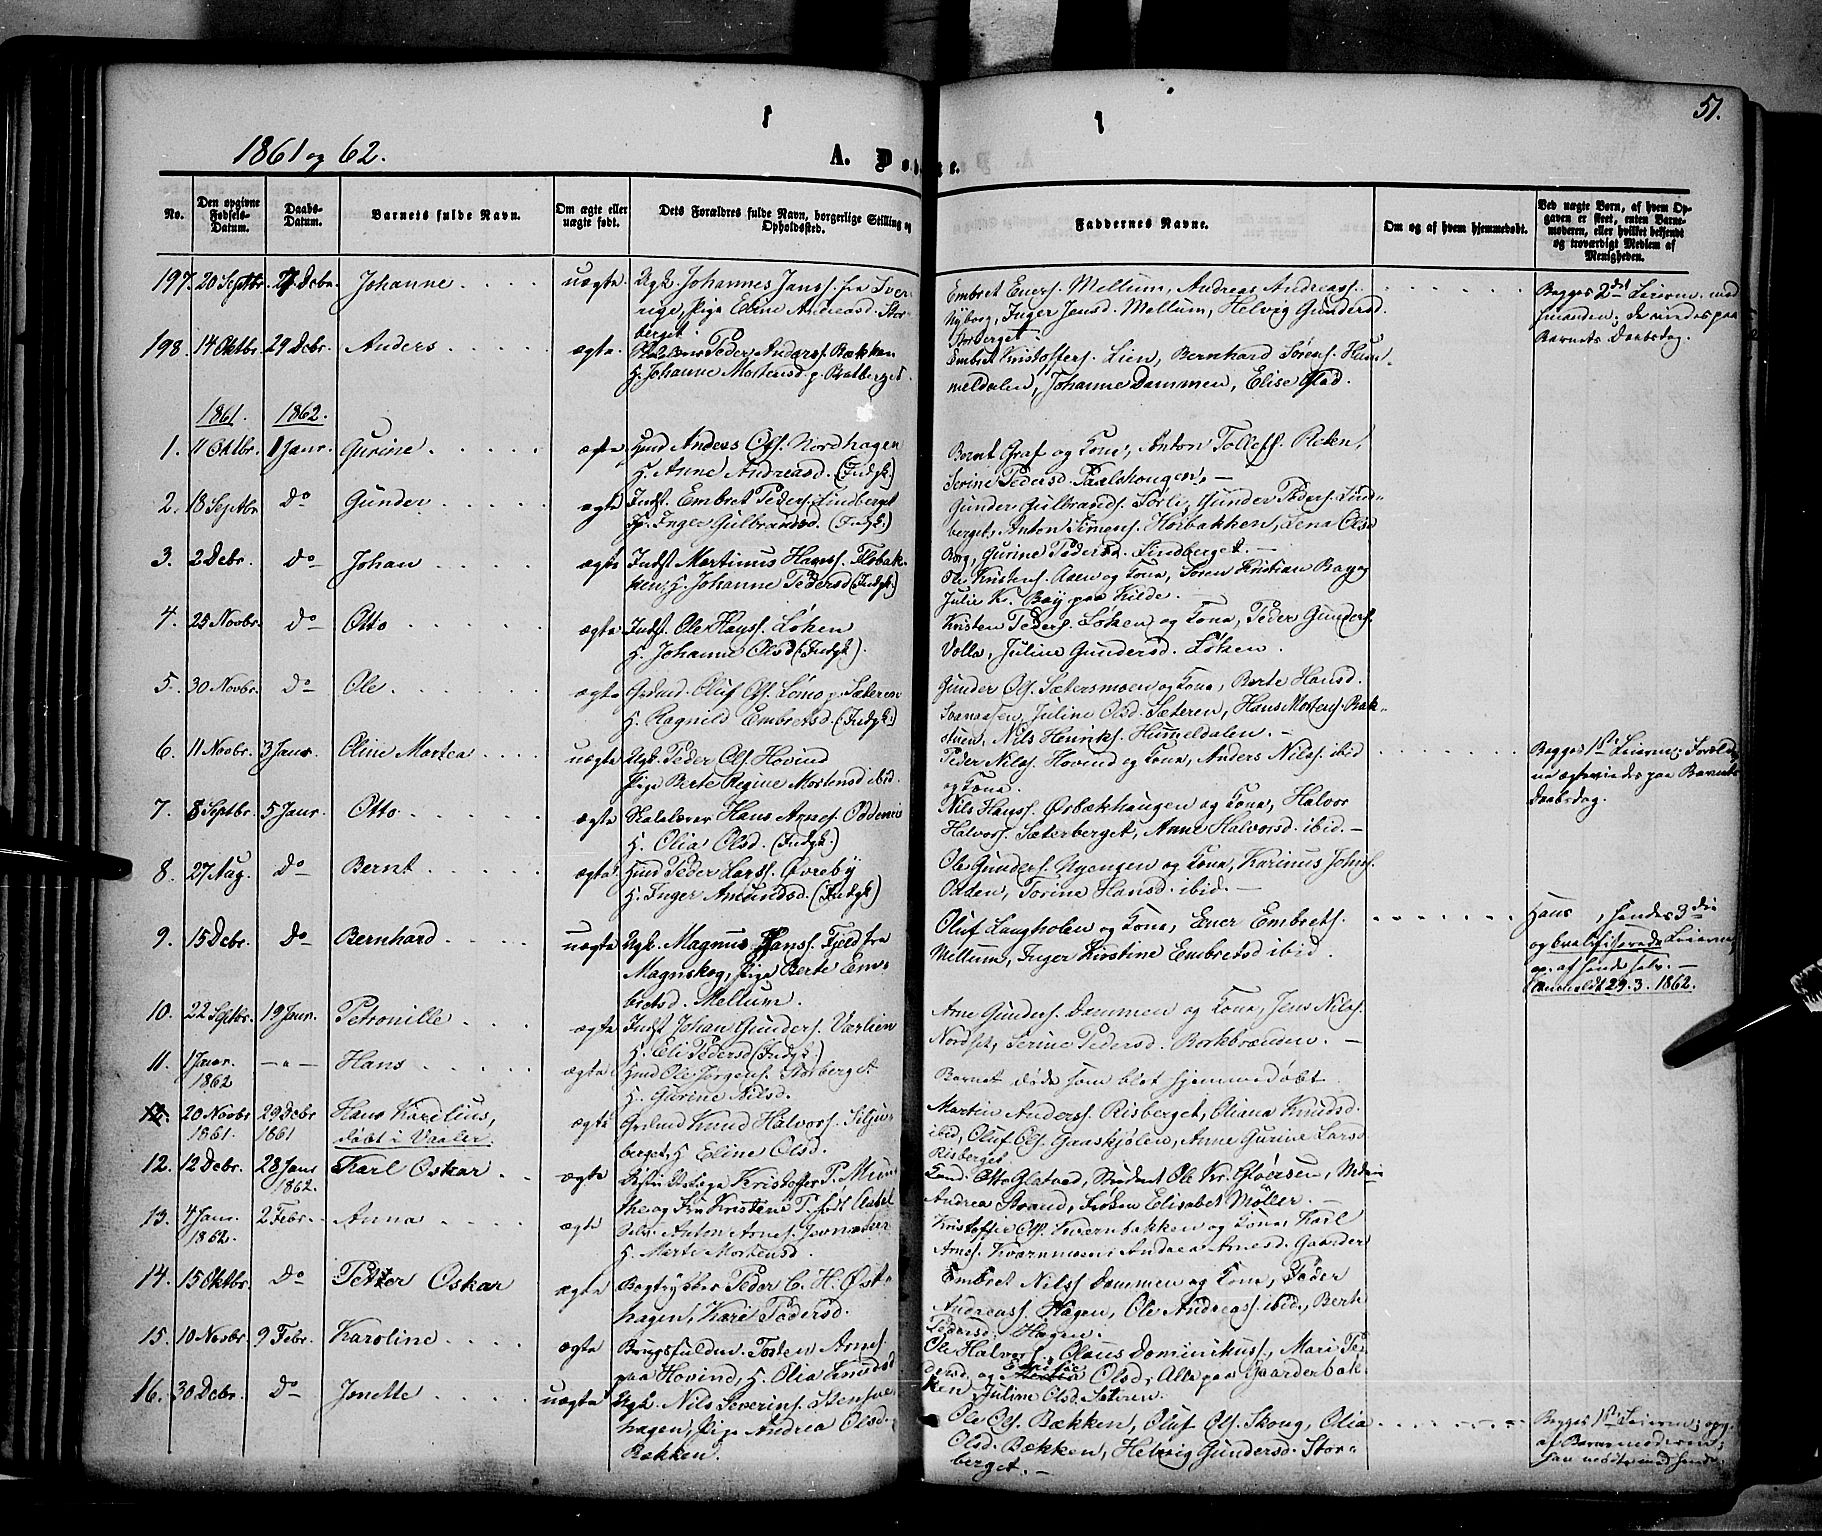 51.
1861 og 62.
A. Døbte.
No.
Den opgivne Fødsels-Datum.
Daabs-Datum.
Barnets fulde Navn.
Om ægte eller uægte født.
Dets Forældres fulde Navn, borgerlige Stilling og Opholdssted.
Faddernes Navne.
Om og af hvem hjemmedøbt.
Ved uægte Børn, af hvem Opgaven er skeet, enten Barnemoderen, eller hvilket bekjendt og troværdigt Medlem af Menigheden.
197. 20 Septbr. Debr. Johanne uægte Ugk. Johannes Janss. fra Sverrige, Pige Eline Andreasd. Storberget.
Embret Eners. Mellum, Andreas Andreass. Nyborg, Inger Jensd. Mellum, Helvig Gundersd. Storberget.
Begges 2det Leierm. med hinanden; de viedes paa Barnets Daabsdag.
198. 14 Oktbr. 29 Debr. Anders ægte Peder Anderss. Bækken H. Johanne Mortensd. p. Bratberget.
Embret Kristoffers. Lien, Bernhard Sørens. Hummeldalen, Johanne Dammen, Elise Glad.
1861. 1862.
1. 11 Oktbr. 1 Janr. Gurine ægte Gmd Anders Ols. Nordhagen H. Anne Andreasd. (Indgk.)
Bernt Graf og Kona, Anton Tollefs. Risken, Serine Pedersd. Paalshaugen. —
2. 18 Septbr. Do Gunder ægte Indst. Embret Peders. Lindberget H. Inger Gulbrandsd. (Indgk.)
Gunder Gulbrands. Sørli, Gunder Peders. Lindberget, Anton Simens. Holbakken, Lena Olsd. Borg, Gurine Pedersd. Lindberget. —
3. 2 Debr. Do Johan ægte Indst. Martinus Hanss. Flobakken, H. Johanne Pedersd. (Indgk.)
Ole Kristens. Aaen og Kona, Søren Kristian Bay og Julie K. Bay paa Kilde. —
4. 25 Novbr. Do Otto ægte Indst. Ole Hanss. Løken H. Johanne Olsd. (Indgk.)
Kristen Peders. Løken og Kona, Peder Gunders. Volla, Juline Gundersd. Løken.
5. 30 Novbr. Do Ole ægte Grdmd. Oluf Ols. Lømo p. Sæteren H. Ragnild Embretsd. (Indgk.)
Gunder Ols. Sætersmoen og Kona, Berte Hansd. Svenaasen, Juline Olsd. Sæteren, Hans Mortens. Bakstuen, Nils Henriks. Hummeldalen. —
6. 11 Novbr. 3 Janr. Oline Mortea uægte Ugk. Peder Ols. Hovind Pige Berte Regine Mortensd. ibid.
Peder Nilss. Hovind og Kona, Anders Nilss. ibid og Kona.
Begges 1ste Leierm.; Forældrene ægteviedes paa Barnets Daabsdag.
7. 8 Septbr. 5 Janr. Otto ægte Skolelærer Hans Arnes. Oddemis H. Olia Olsd. (Indgk.)
Nils Hanss. Øsbækhaugen og Kona, Halvor Halvors. Sæterberget, Anne Halvorsd. ibid. —
8. 27 Aug. Do Bernt ægte Gmd Peder Larss. Øvreby H. Inger Amundsd. (Indgk.)
Ole Gunders. Nyengen og Kona, Karinus Johns. Odden, Torine Hansd. ibid. —
9. 15 Debr. Do Bernhard uægte Ugk. Magnus Hanss. Fjeld fra Magnskog, Pige Berte Embretsd. Mellum.
Oluf Langholen og Kona, Ener Embrets. Mellum, Inger Kirstine Embretsd. ibid.
Hans , hendes 3die og kvalificerede Leierm., op. af hende selv. — Anmeldt 29.3.1862.
10. 22 Septbr. 19 Janr. Petronille ægte Indst. Johan Gunders. Vaslien H. Eli Pedersd. (Indgk.)
Arne Gunders. Dammen og Kona, Jens Nilss. Nordset, Serine Pedersd. Borkbrænden. —
11. 1 Janr. 1862 — " — Hans ægte Gmd Ole Jørgens. Storberget H. Gurine Nilsd.
Barnet døde som blot hjemmedøbt.
12. 20 Novbr 1861. 29 Debr 1861 Hans Karelius, døbt i Vaaler. ægte Grdmd Knud Halvors. Siljuberget, H. Eline Olsd.
Martin Anderss. Risberget, Oliana Knudsd. ibid, Oluf Ols. Gaaskjølen, Anne Gurine Larsd. Risberget
12. 12 Debr. 28 Janr 1862. Karl Oskar ægte Distr. Læge Kristoffer P. Munthe og Fru Kristene T. født Aabel
Cand. Otto Gløtvad, Student Ole Kr. Gløersen, Andrea Strand, Frøken Elisabet Møller. —
13. 4 Janr. 1862. 2 Febr. Anna ægte Selv. Anton Arnes. H. Marte Mortensd.
Kristoffer Ols. Kvernbakken og Kona, Karl Arnes. Kvernmoen, Andrea Arnesd. Gaarder
14. 15 Oktbr. Do Petter Oskar ægte Bogtrykker Peder C. H. Østhagen, Kari Pedersd.
Embret Nilss. Dammen og Kona, Peder Andreass. Hagen, Ole Andreass. ibid., Berte Pedersd. Hagen.
15. 10 Novbr. 9 Febr. Karoline ægte Brugsfuldm. Tosten Arnes. paa Hovind, H. Olia Knudsd.
Ole Halvors., Olaus Dominikuss., Mari Pedersd. og Emilie Olsd., Alle paa Gaarderbakken, Juline Olsd. Sæteren.
16. 30 Debr. Do Jonette uægte Ugk. Nils Severins. Stenshagen, Pige Andrea Olsd. Bækken.
Ole Ols. Bækken, Oluf Ols. Skoug, Olia Olsd. Bækken, Helvig Gundersd. Storberget. —
Begges 1ste Leierm., opg. af Barnemoderen;